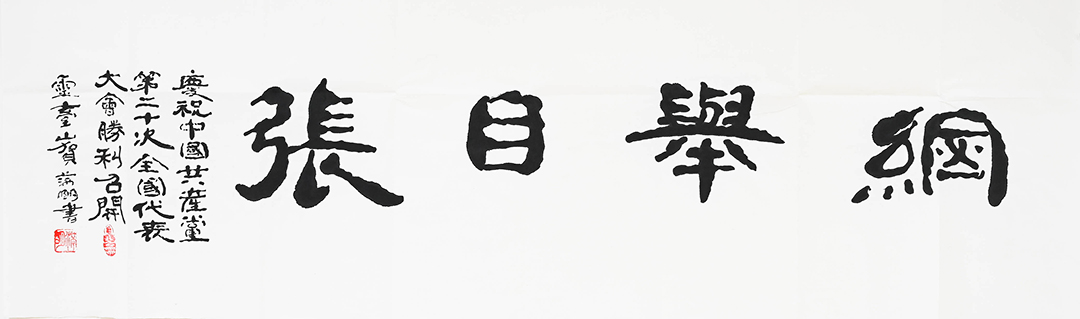 綱舉目張
慶祝中國共產黨
第二十次全國代表
大會勝利召開
靈臺山賀
書